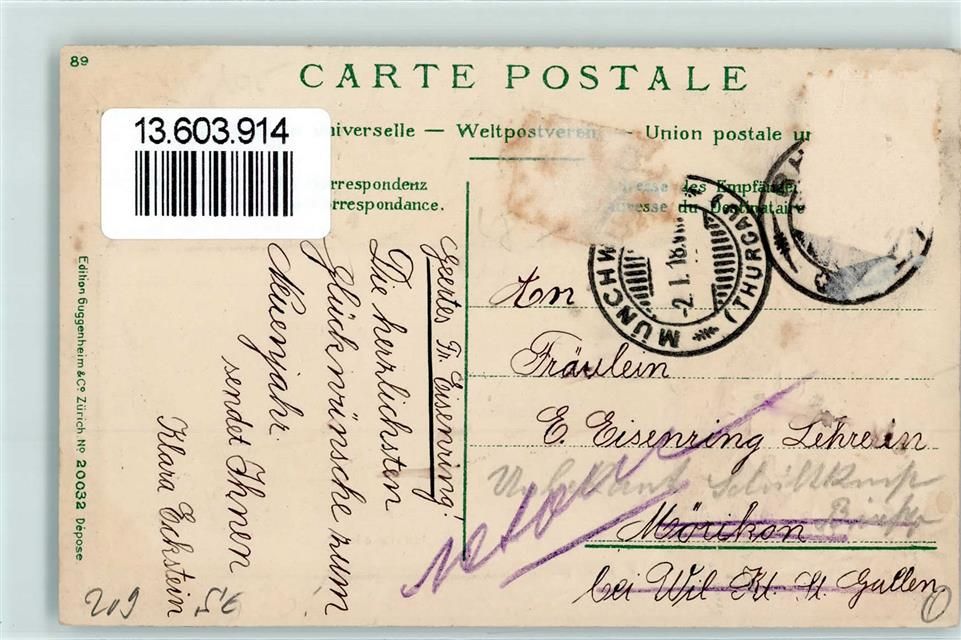 89
CARTE POSTALE
13.603.914
universelle — Weltpostverein — Union postale un
rrespondenz
rrespondance.
des Empfän
du Destinataire
MÜNCH
(THURGAU)
-2.I.18
Geertes Fr. Eisenring!
Die herzlichsten
Glückwünsche zum
Neuenjahr.
sendet Ihnen
Klara Eckstein
An
Fräulein
E. Eisenring Lehrerin
Unbekannt
retour
Mörikon
bei Wil Kt. St. Gallen
Edition Guggenheim & Co Zürich No 20032 Déposé
209 5E